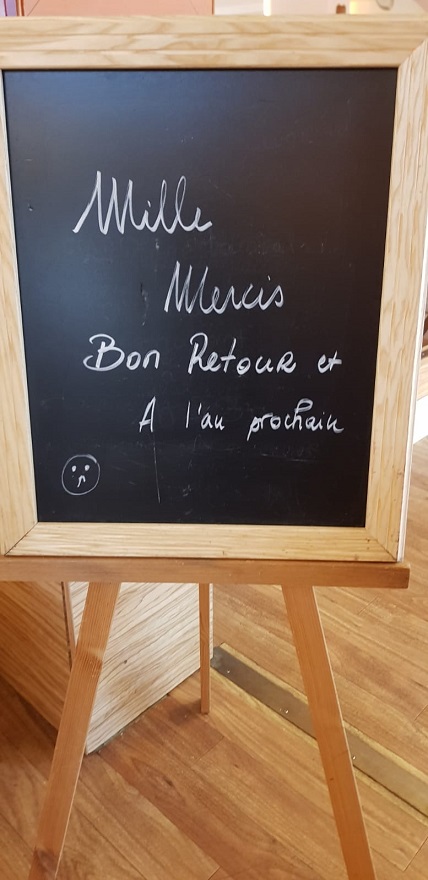 Mille
Mercis
Bon Retour et
A l'an prochain